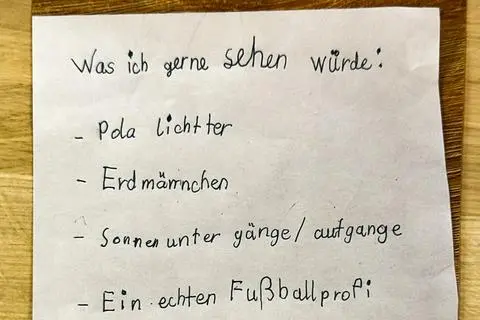 Was ich gerne sehen würde:
- Pola lichtter
- Erdmännchen
- Sonnenunter gänge/ aufgange
- Ein echten Fußballprofi